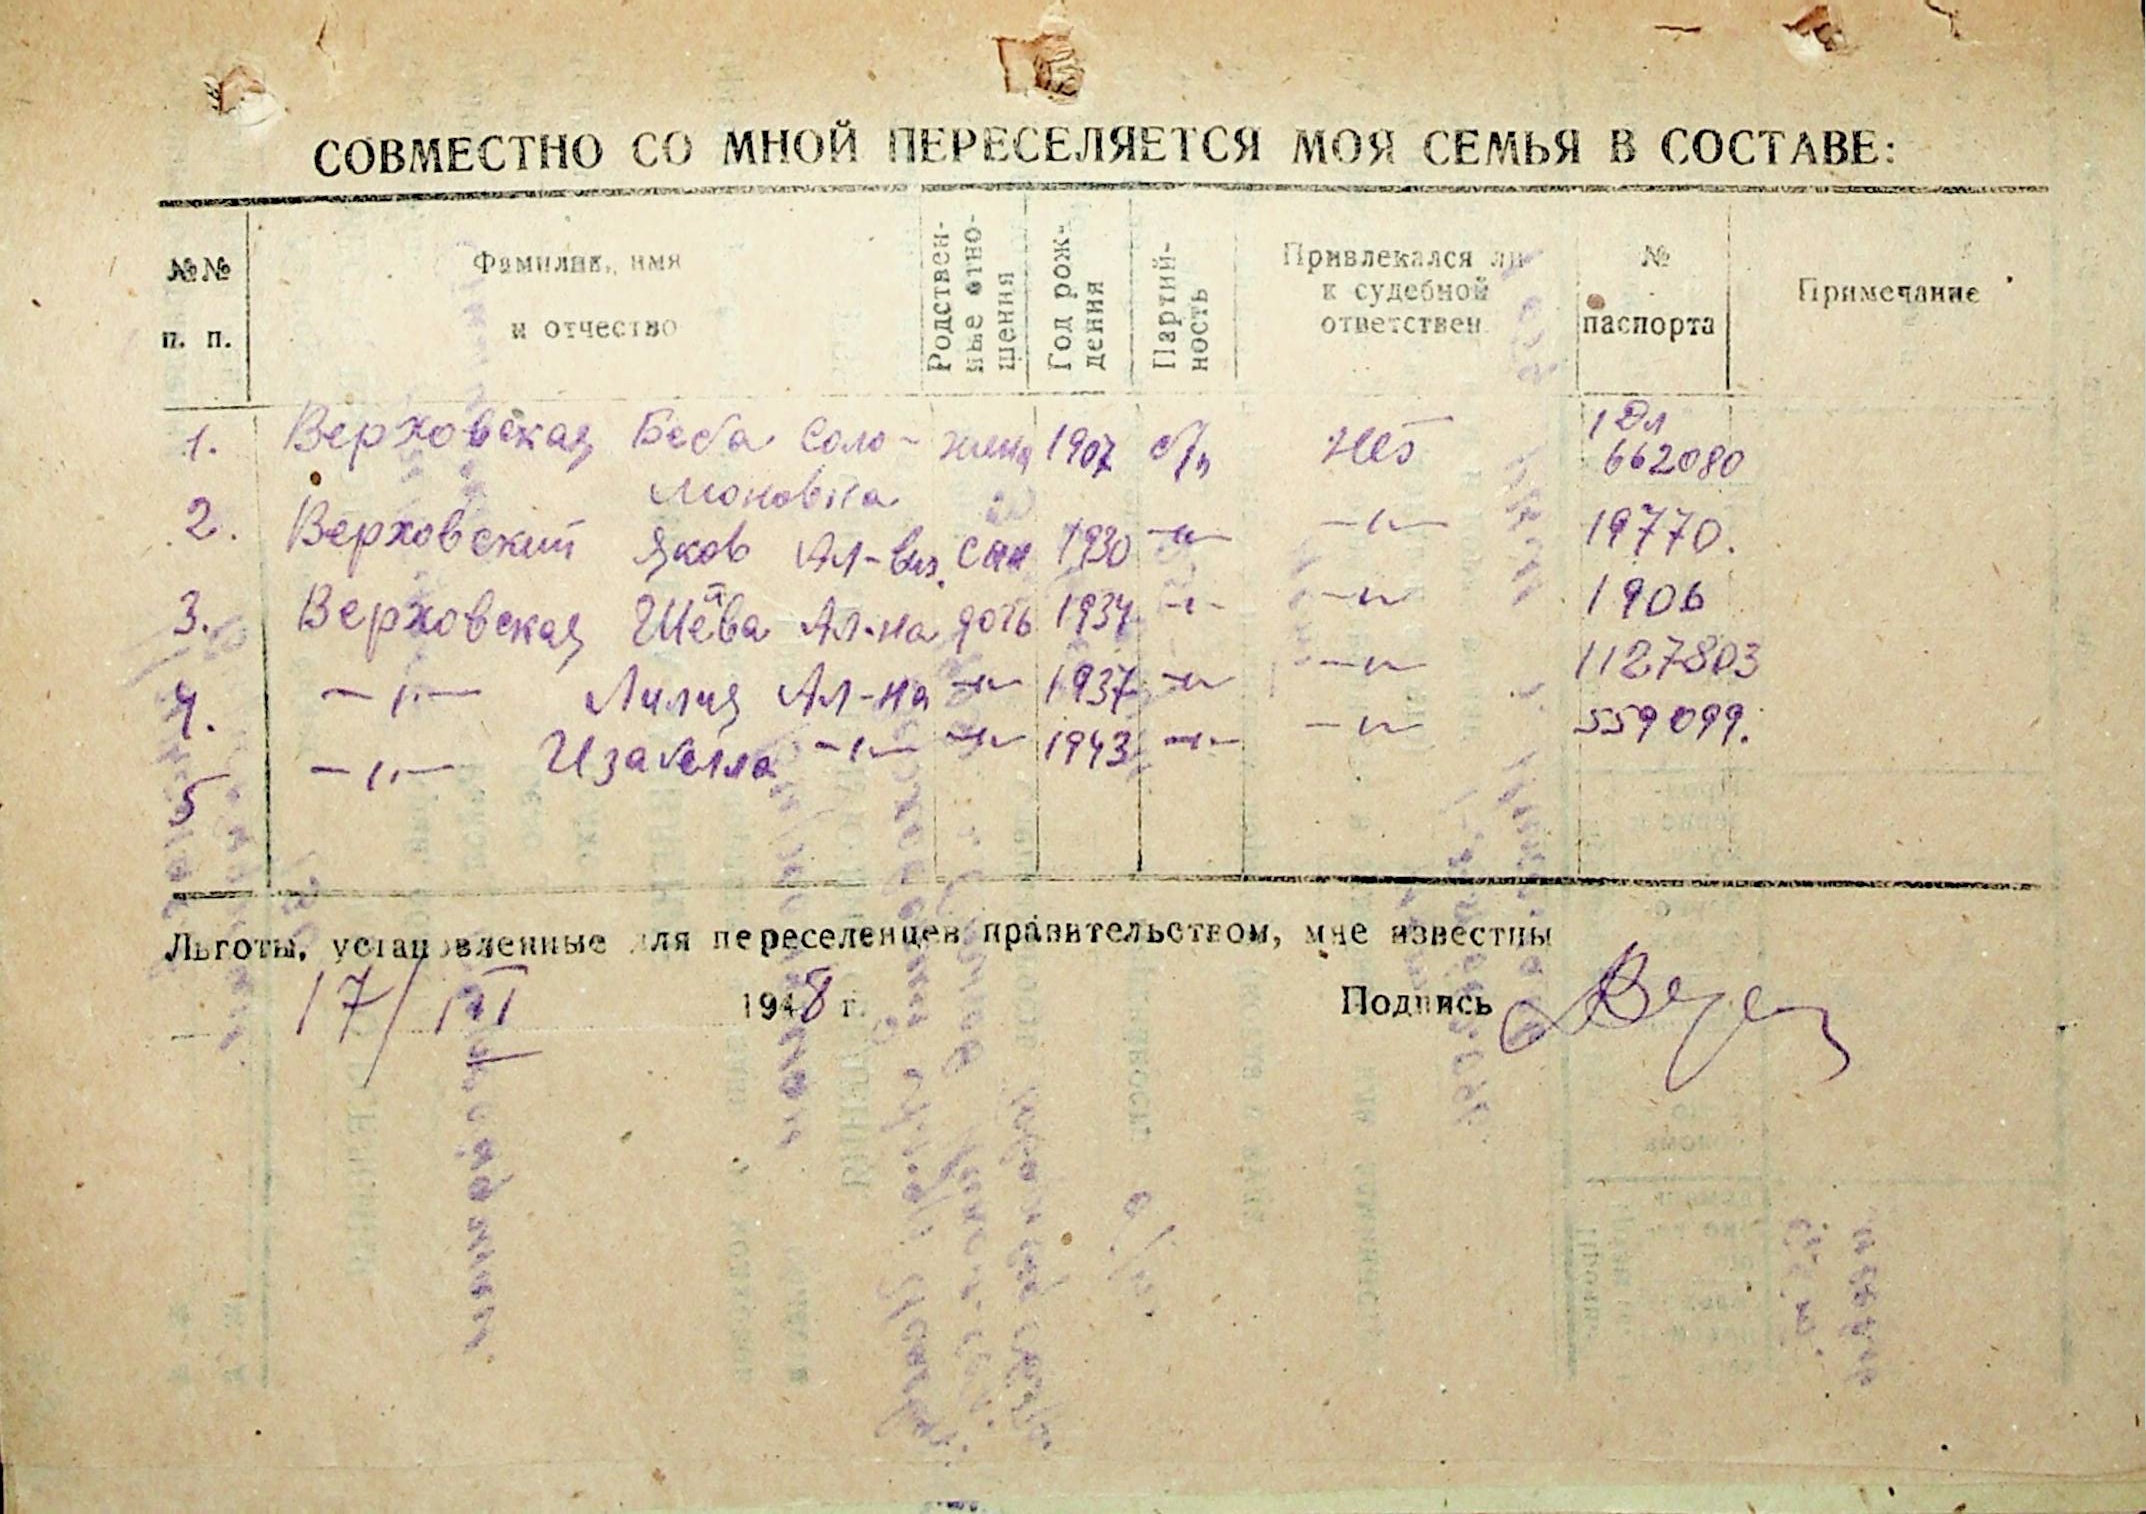 СОВМЕСТНО СО МНОЙ ПЕРЕСЕЛЯЕТСЯ МОЯ СЕМЬЯ В СОСТАВЕ:
№№ п. п. Фамилия, имя и отчество Родствен-ные отно-шения Год рож-дения Партий-ность Привлекался ли к судебной ответствен. № паспорта Примечание
1. Верховская Беба Соло- жена 1907 б/п Нет 1 Эл 662080
моновна
2. Верховский Яков Ал-вич. сын 1930 -"- -"- 19770.
3. Верховская Шева Ал-на дочь 1934 -"- -"- 1906
4. -"- Лилия Ал-на -"- 1937 -"- -"- 1127803
5 -"- Изабелла -"- -"- 1943 -"- -"- 559099.
Льготы, установленные для переселенцев правительством, мне известны
17/III 1948 г. Подпись